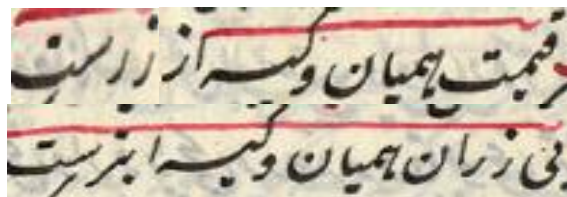 قیمت همیان و کیسه از زرست
بی ز زر آن همیان و کیسه ابترست